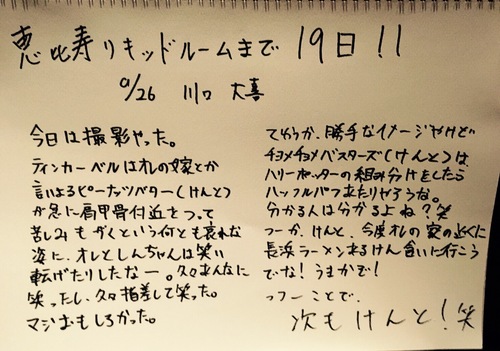 恵比寿リキッドルームまで 19日!!
9/26 川口 大喜
今日は撮影やった。
ティンカーベルはオレの嫁とか
言いよるピーナッツバター(けんと)
が急に肩甲骨付近をつって
苦しみもがくという何とも哀れな
姿に、オレとしんちゃんは笑い
転げたりしたなー。久々あんなに
笑ったし、久々指差して笑った。
マジおもしろかった。
てゆうか、勝手なイメージやけど
チョメチョメバスターズ(けんと)は
ハリーポッターの組み分けをしたら
ハッフルパフ あたりやろうな。
分かる人は分かるよね?笑
つーか、けんと、今度オレの家の近くに
長浜ラーメンあるけん食いに行こう
でな!うまかで!
っつーことで、
次もけんと!笑